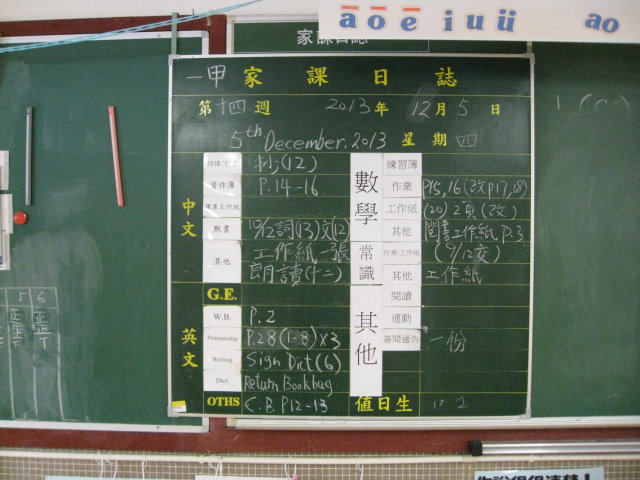 ā ō ē i u ü ao
家課日誌
一甲 家課日誌
第十四週 2013年 12月5日
5th December, 2013 星期四
中文
抄(12)
習作簿 P.14-16
課業工作紙
默書 10/12詞(13)文(12)
其他 工作紙一張
朗讀(十二)
G.E.
英文
W.B. P.2
Penmanship P.28(1-8)x3
Writing Sign Dict(6)
Dict. Return Bookbag
OTHS C.B P12-13
數學
練習簿
作業 P15,16(改P17,18)
工作紙 (20)2頁(改)
其他 工作紙P.3
常識
作業/工作紙 (9/12交)
其他 工作紙
其他
閱讀
運動
簽閱通告 一份
值日生
5 6